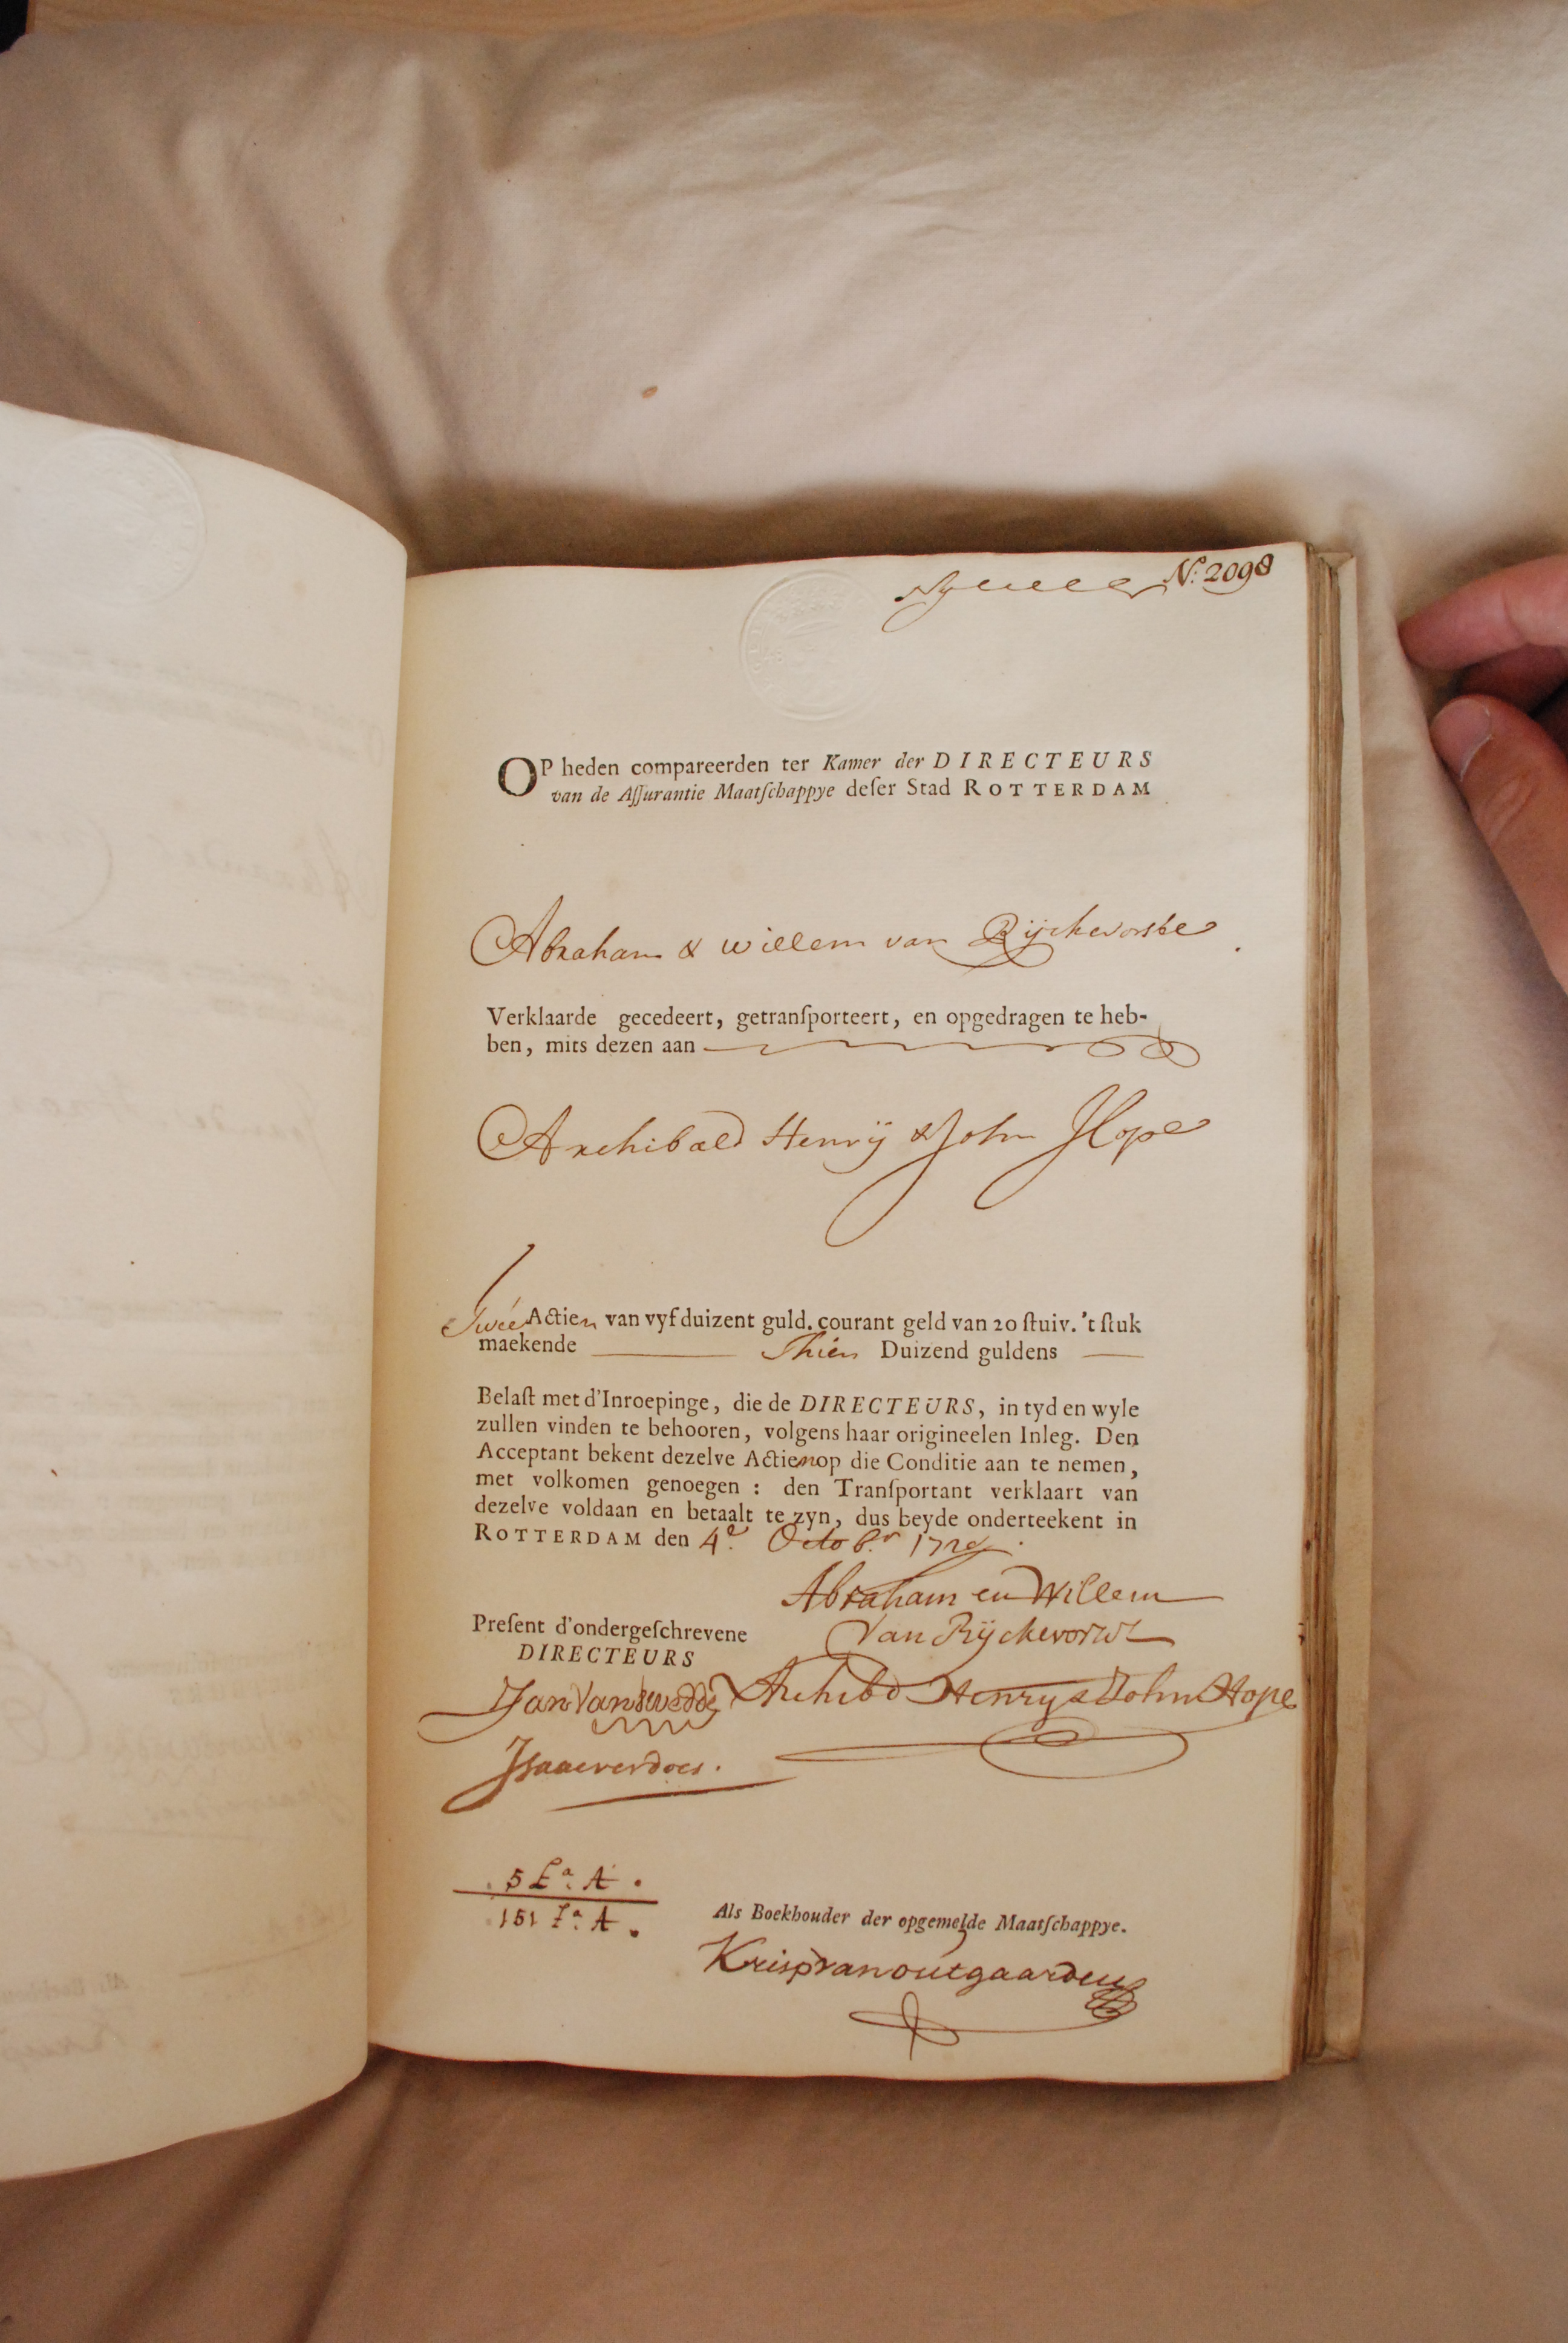 N: 2098
OP heden compareerden ter Kamer der DIRECTEURS
van de Aſſurantie Maatſchappye deſer Stad ROTTERDAM
Abraham & Willem van Rÿckevorsel
Verklaarde gecedeert, getranſporteert, en opgedragen te heb-
ben, mits dezen aan
Archibald Henrÿ & John Hope
Twéé Actien van vyf duizent guld. courant geld van 20 ſtuiv. 't ſtuk
maekende Thien Duizend guldens
Belaſt met d'Inroepinge, die de DIRECTEURS, in tyd en wyle
zullen vinden te behooren, volgens haar origineelen Inleg. Den
Acceptant bekent dezelve Actien op die Conditie aan te nemen,
met volkomen genoegen : den Tranſportant verklaart van
dezelve voldaan en betaalt te zyn, dus beyde onderteekent in
ROTTERDAM den 4e. Octobr.
Abraham en Willem
Van Rÿckevorsel
Preſent d'ondergeſchrevene
DIRECTEURS
Archibd Henry & John Hope
Isaac verdoes.
5 La. A.
151 La. A.
Als Boekhouder der opgemelde Maatſchappye.
Krisp van outgaarden